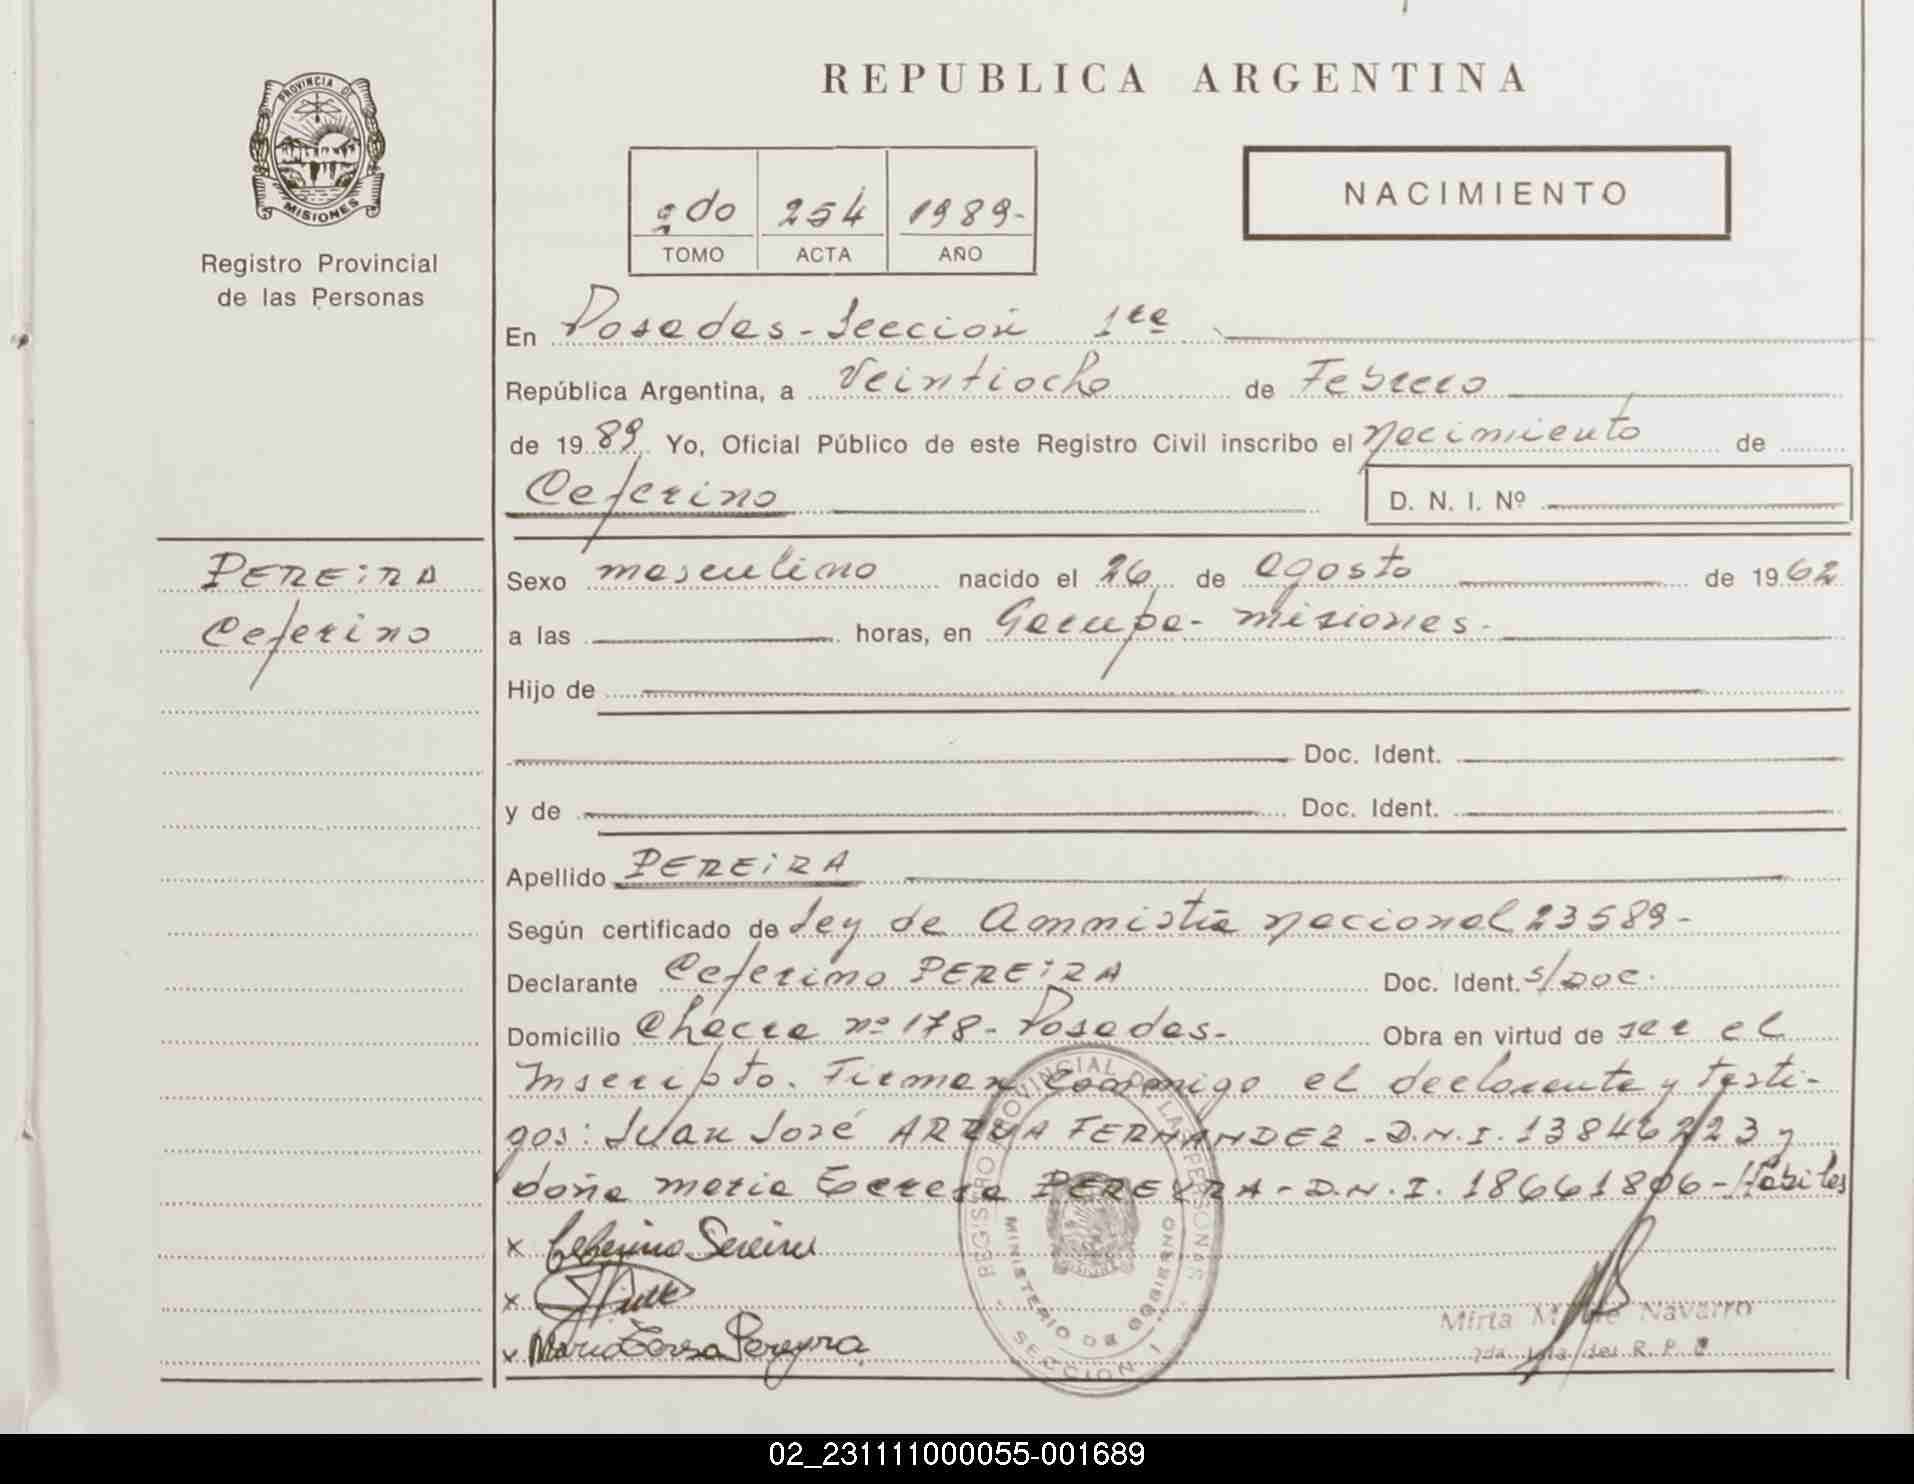 PROVINCIA DE
MISIONES
Registro Provincial
de las Personas
REPUBLICA ARGENTINA
2do 254 1989-
TOMO ACTA AÑO
NACIMIENTO
En Posadas - Sección 1ra
República Argentina, a Veintiocho de Febrero
de 1989 Yo, Oficial Público de este Registro Civil inscribo el Nacimiento de
Ceferino
D. N. I. Nº
PEREIRA
Ceferino
Sexo masculino nacido el 26 de agosto de 1962
a las horas, en Garupa - Misiones -
Hijo de
Doc. Ident.
y de Doc. Ident.
Apellido PEREIRA
Según certificado de Ley de Amnistia Nacional 23589-
Declarante Ceferino PEREIRA Doc. Ident. S/DOC.
Domicilio Chacra nº 178 - Posadas - Obra en virtud de ser el
Inscripto. Firman conmigo el declarante y testi-
gos: Juan José FERNANDEZ - D.N.I. 13846223 y
doña Maria Teresa PEREYRA - D.N.I. 18661806 - Hábiles
x Ceferino Pereira
x
x Maria Teresa Pereyra
REGISTRO PROVINCIAL DE LAS PERSONAS
MINISTERIO DE GOBIERNO
SECCION 1
Mirta Navarro
del R. P.
02_231111000055-001689